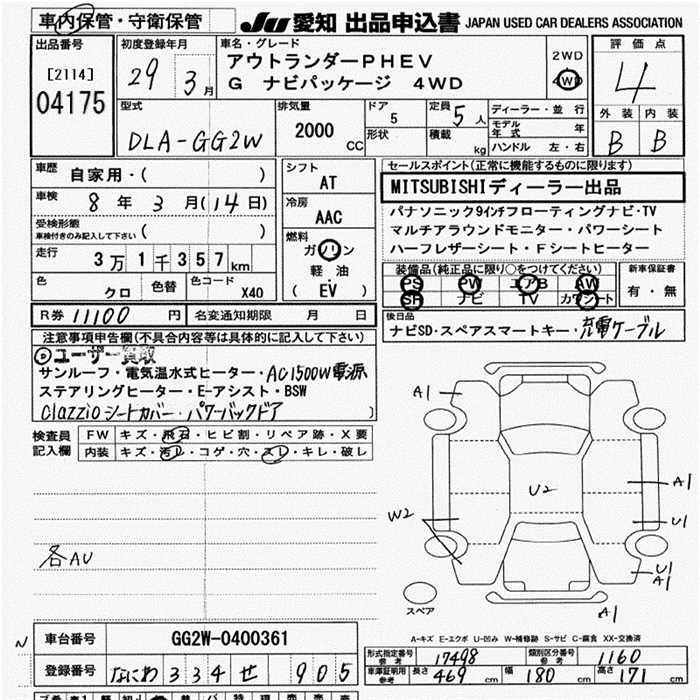 車内保管・守衛保管
JU 愛知 出品申込書 JAPAN USED CAR DEALERS ASSOCIATION
出品番号
[2114]
04175
初度登録年月
29年 3月
車名・グレード
アウトランダーPHEV
G ナビパッケージ 4WD
2WD
4WD
評価点
4
外装 内装
B B
型式
DLA-GG2W
排気量
2000 CC
ドア
5
形状
定員
5人
積載 kg
ディーラー・並行
モデル年式 年
ハンドル 左・右
車歴
自家用・( )
車検
8年 3月(14日)
受検形態
車検付きのみ記入して下さい ( )
走行
3万1千357km
色 クロ 色替 色コード X40
シフト
AT
冷房
AAC
燃料
ガソリン
軽油
( EV )
セールスポイント(正常に機能するものに限ります)
MITSUBISHIディーラー出品
パナソニック9インチフローティングナビ・TV
マルチアラウンドモニター・パワーシート
ハーフレザーシート・Fシートヒーター
装備品(純正品に限り○をつけてください)
PS PW エアB AW
SR ナビ TV カワシート
新車保証書
有・無
R券 11100 円 名変通知期限 月 日
後日品
ナビSD・スペアスマートキー・充電ケーブル
注意事項申告欄(不具合内容等は具体的に記入して下さい)
◎ユーザー買取
サンルーフ・電気温水式ヒーター・AC1500W電源
ステアリングヒーター・E-アシスト・BSW
Clazzioシートカバー・パワーバックドア )
検査員記入欄
FW キズ・飛石・ヒビ割・リペア跡・X要
内装 キズ・汚レ・コゲ・穴・スレ・キレ・破レ
各AU
A1
U2
A1
W2
U1
U1
A1
A1
スペア
A-キズ E-エクボ U-凹み W-補修跡 S-サビ C-腐食 XX-交換済
N
車台番号 GG2W-0400361
登録番号 なにわ 334 せ 905
形式指定番号 参考 17498 類別区分番号 参考 1160
車庫証明用 参考 長さ 469 cm 幅 180 cm 高さ 171 cm